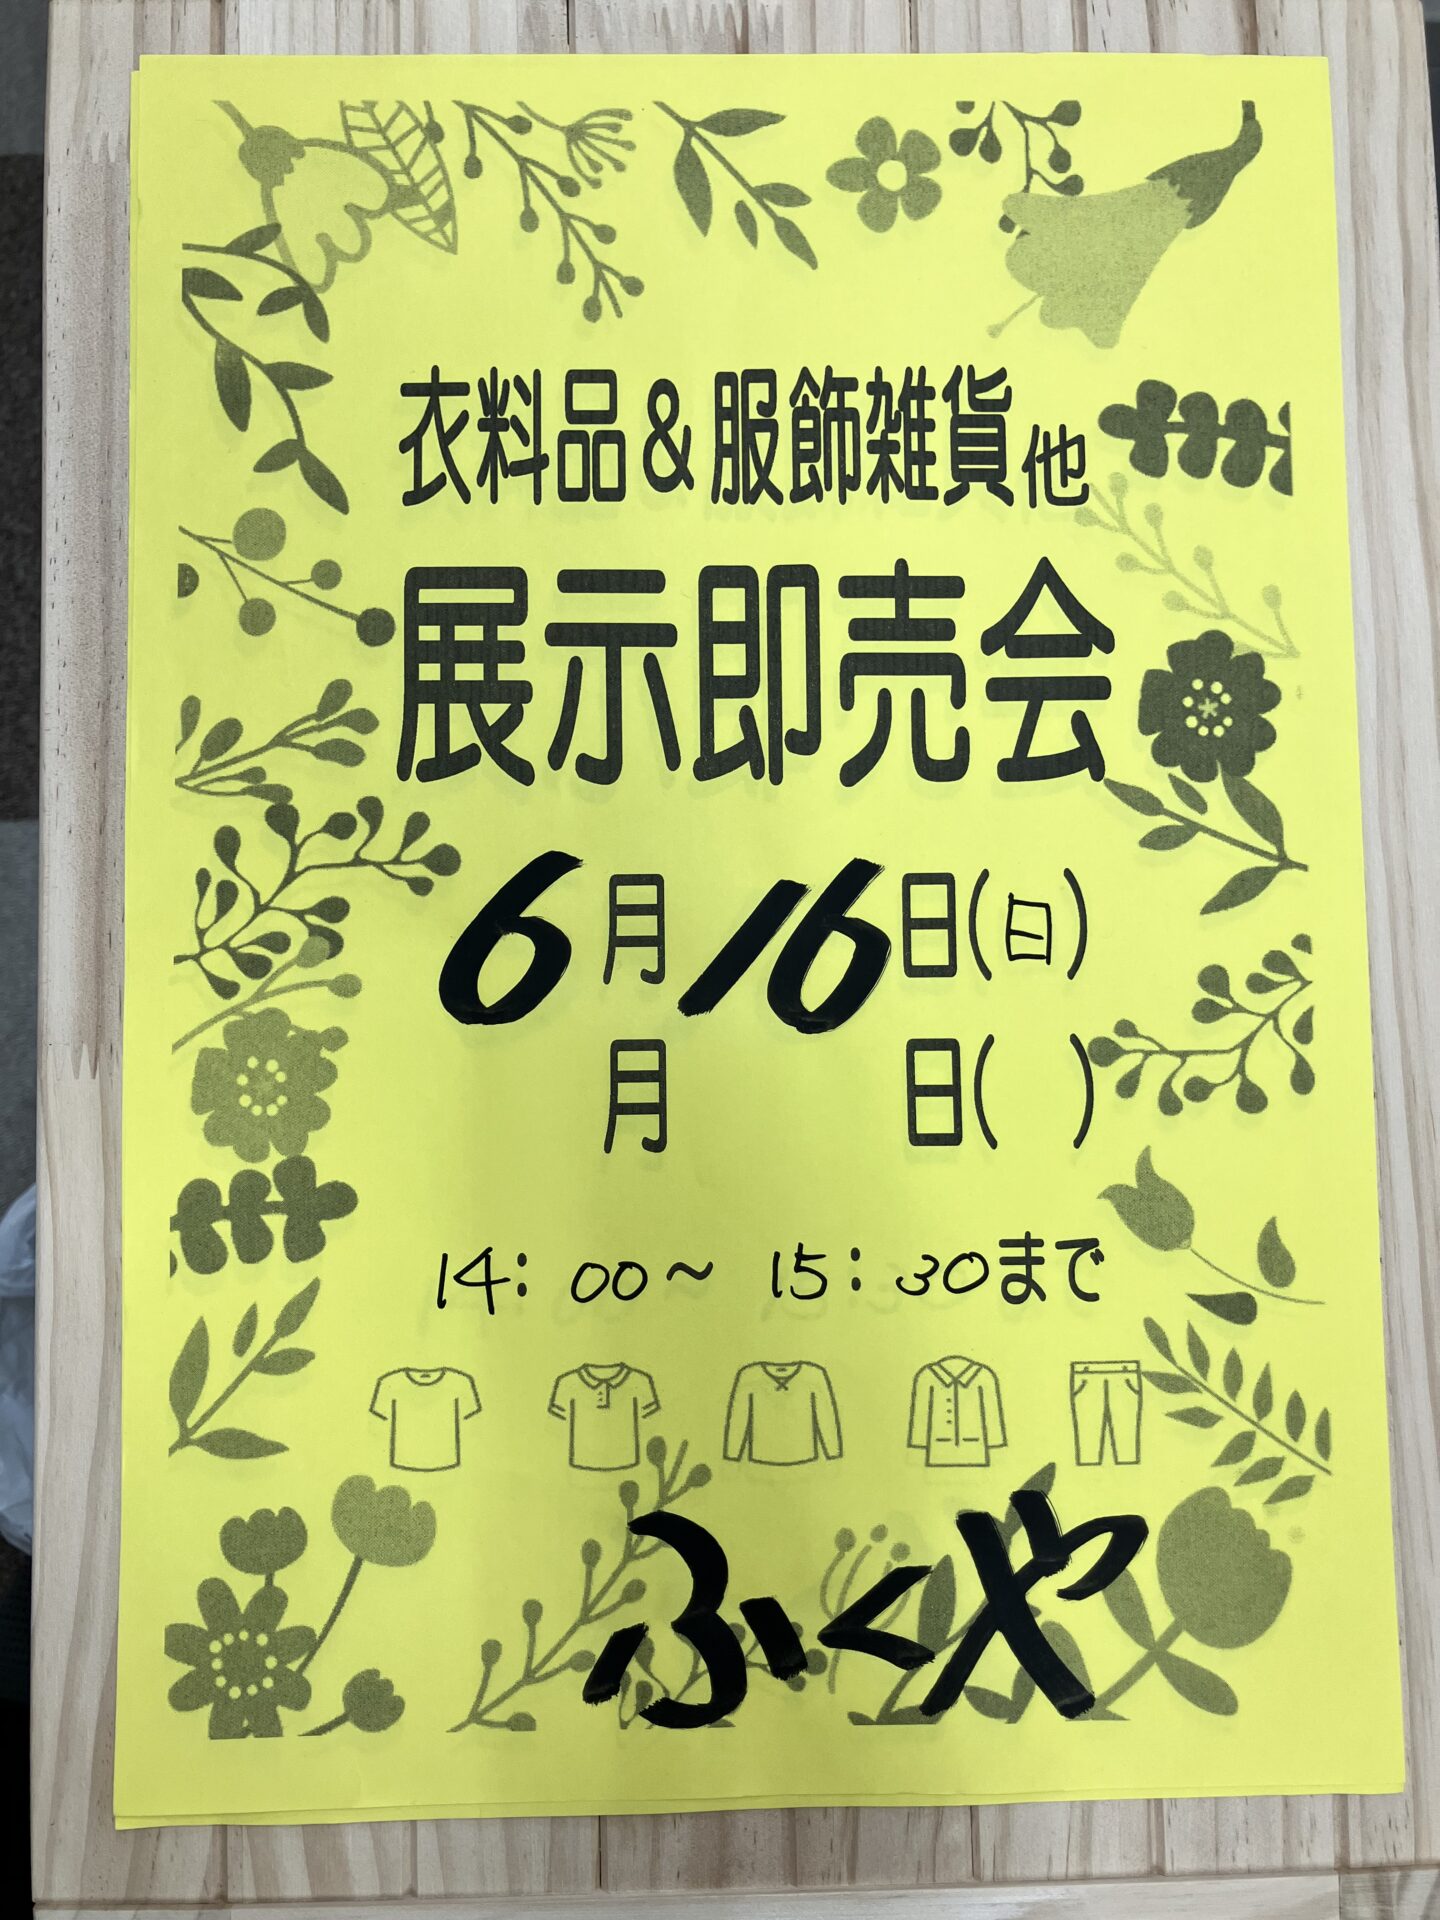 衣料品&服飾雑貨他
展示即売会
6月16日(日)
月 日( )
14:00~15:30まで
ふくや